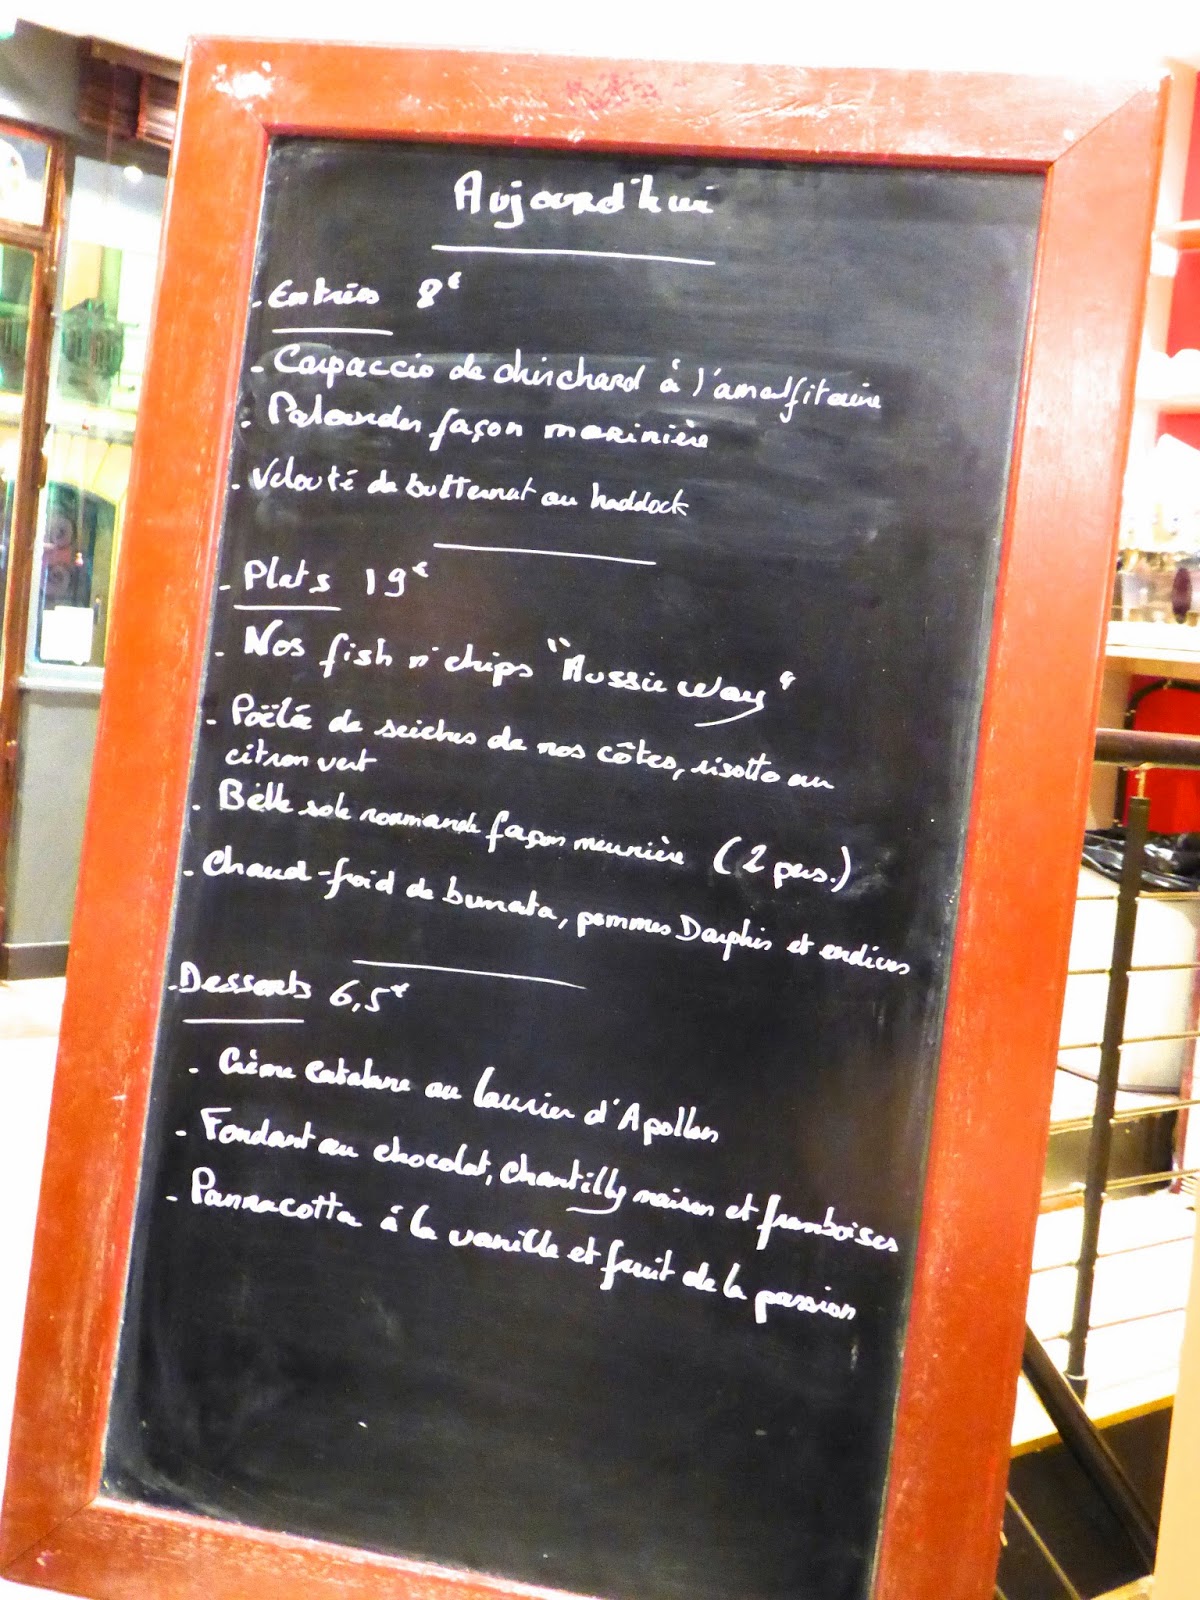 Aujourd'hui
- Entrées 8€
- Carpaccio de chinchard à l'amalfitaine
- Palourdes façon marinière
- Velouté de butternut au haddock
- Plats 19€
- Nos fish n' chips "Aussie way"
- Poëlée de seiches de nos côtes, risotto au
citron vert
- Belle sole normande façon meunière (2 pers.)
- Chaud-froid de burrata, pommes Dauphis et endives
- Desserts 6,5€
- Crème catalane au laurier d'Apollon
- Fondant au chocolat, chantilly maison et framboises
- Pannacotta à la vanille et fruit de la passion